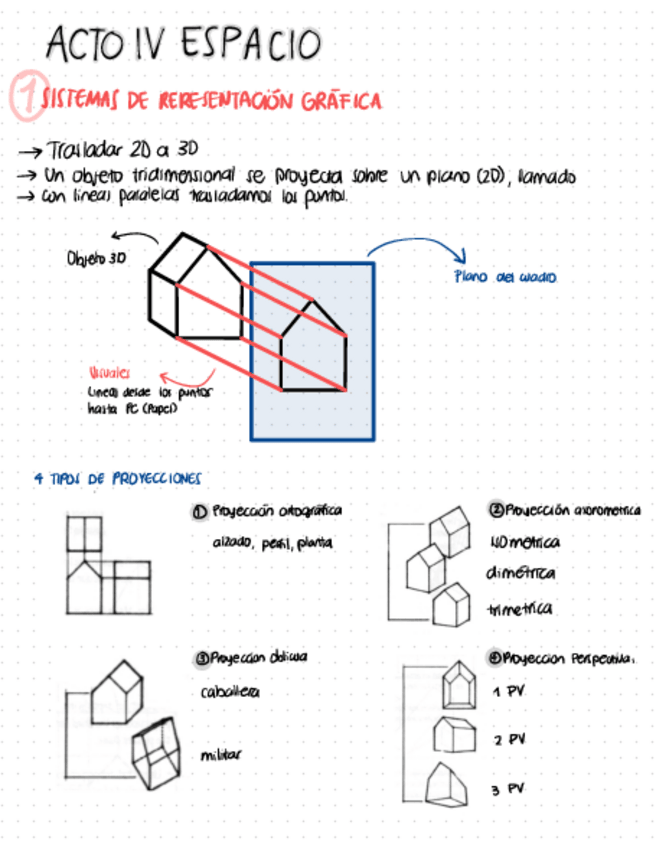 ACTO IV ESPACIO
1 SISTEMAS DE REPRESENTACIÓN GRÁFICA
→ Trasladar 2D a 3D
→ Un objeto tridimensional se proyecta sobre un plano (2D), llamado
→ con líneas paralelas trasladamos los puntos.
Objeto 3D
Plano del cuadro
Visuales
Líneas desde los puntos
hasta PC (Papel)
4 TIPOS DE PROYECCIONES
① Proyección ortográfica
alzado, perfil, planta
② Proyección axonometrica
isometrica
dimétrica
trimetrica
③ Proyeccion oblicua
caballera
militar
④ Proyección Perspectiva.
1 PV
2 PV
3 PV